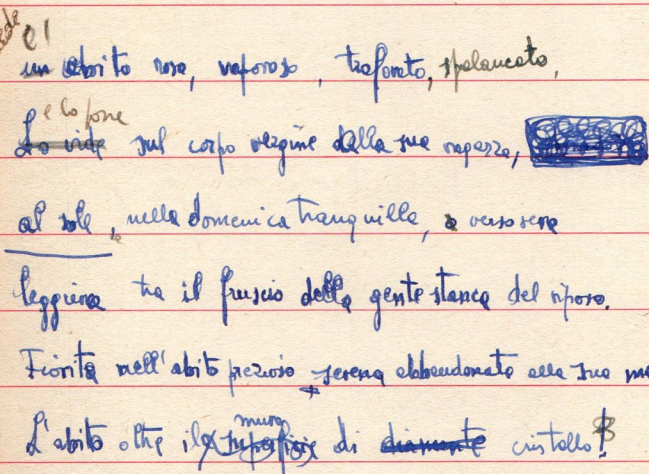 el
un abito rosa, vaporoso, traforato, spalancato,
e lo pone
Lo vide sul corpo vergine della sua ragazza,
al sole, nella domenica tranquilla, verso sera
leggiera tra il fruscio della gente stanca del riposo.
Fiorita nell'abito prezioso, serena abbandonata alla sua
muro
L'abito oltre il di diamante cristallo!